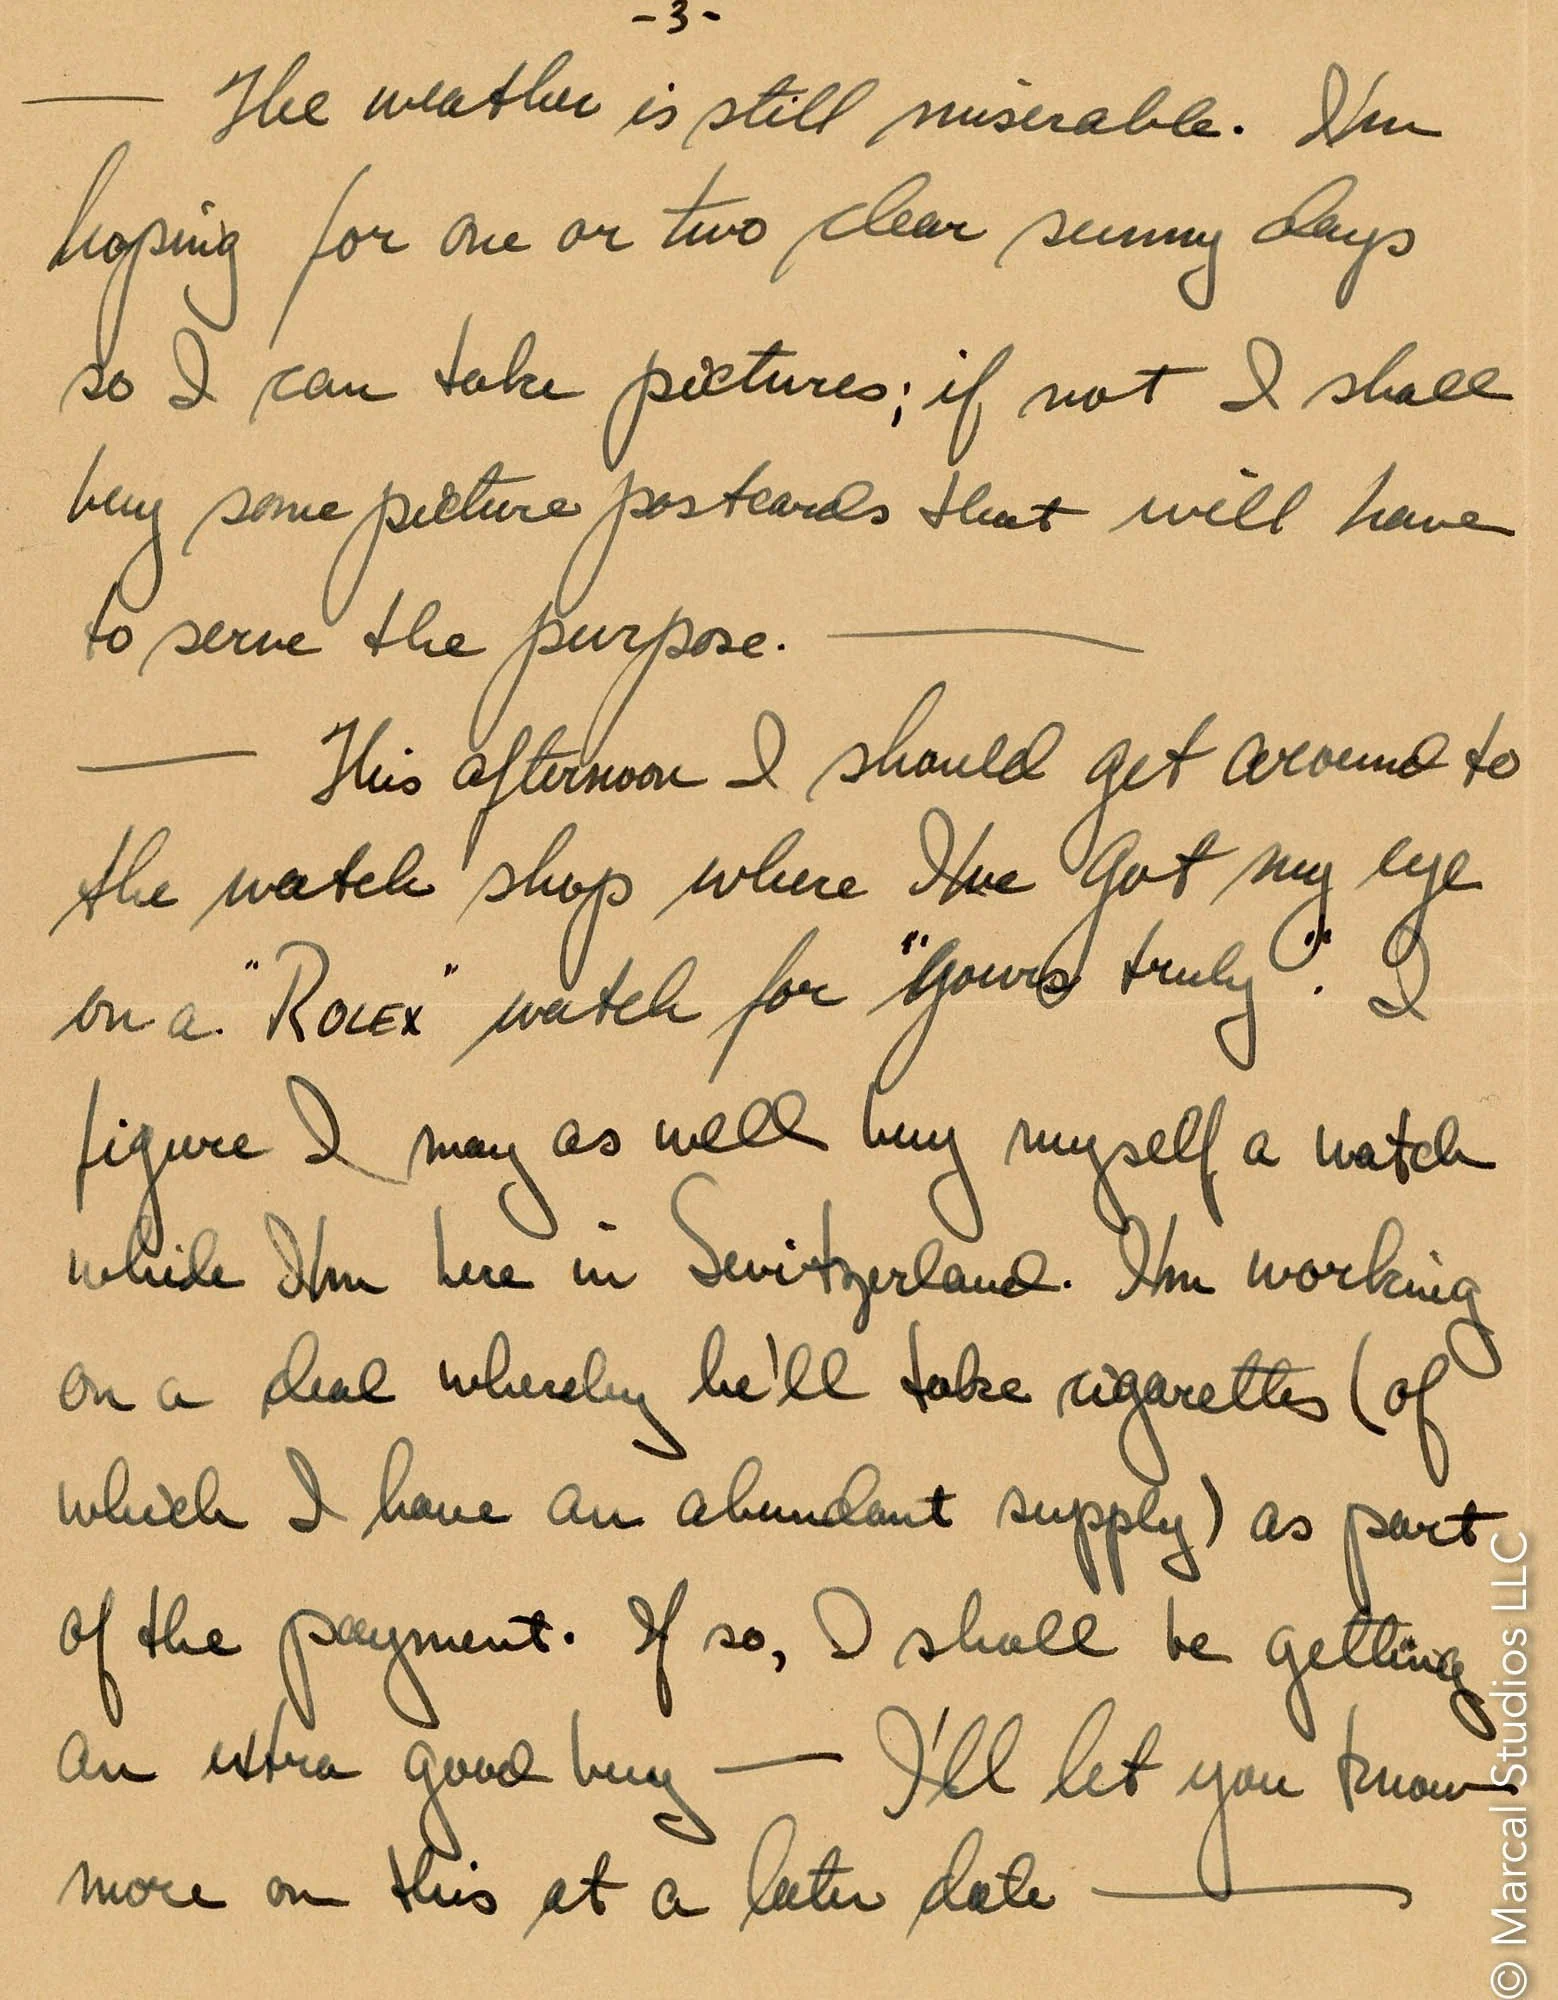 -3-
— The weather is still miserable. I'm
hoping for one or two clear sunny days
so I can take pictures; if not I shall
buy some picture postcards that will have
to serve the purpose. —
— This afternoon I should get around to
the watch shop where I've got my eye
on a "ROLEX" watch for "yours truly". I
figure I may as well buy myself a watch
while I'm here in Switzerland. I'm working
on a deal whereby he'll take cigarettes (of
which I have an abundant supply) as part
of the payment. If so, I shall be getting
an extra good buy — I'll let you know
more on this at a later date —
© Marcal Studios LLC